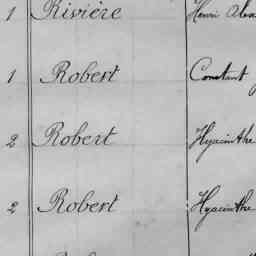 1 Rivière Henri
1 Robert Constant
2 Robert Hyacinthe
2 Robert Hyacinthe